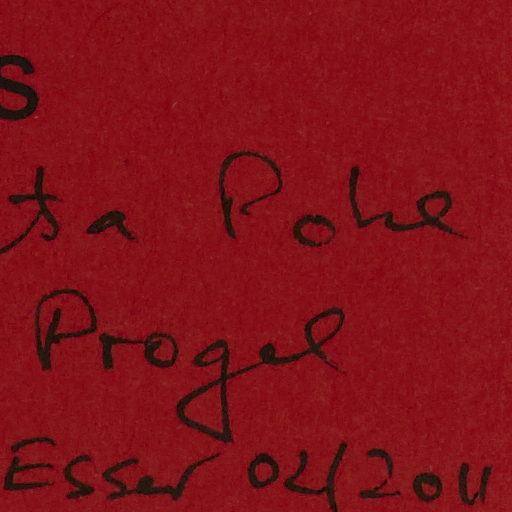 s
ta Poke
Progel
Esser 04/2011